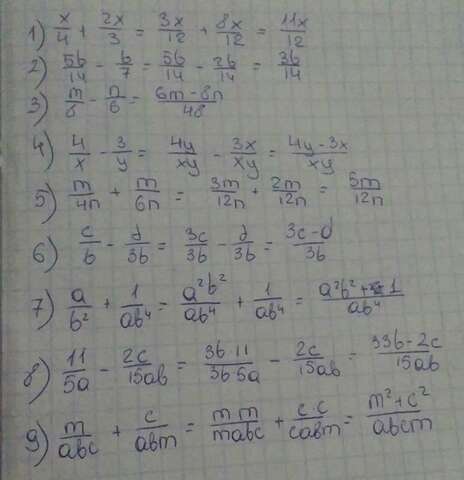 1) x/4 + 2x/3 = 3x/12 + 8x/12 = 11x/12
2) 5b/14 - b/7 = 5b/14 - 2b/14 = 3b/14
3) m/8 - n/6 = (6m-8n)/48
4) 4/x - 3/y = 4y/xy - 3x/xy = (4y-3x)/xy
5) m/4n + m/6n = 3m/12n + 2m/12n = 5m/12n
6) c/b - d/3b = 3c/3b - d/3b = (3c-d)/3b
7) a/b² + 1/ab⁴ = a²b²/ab⁴ + 1/ab⁴ = (a²b²+1)/ab⁴
8) 11/5a - 2c/15ab = 3b·11/3b·5a - 2c/15ab = (33b-2c)/15ab
9) m/abc + c/abm = m·m/mabc + c·c/cabm = (m²+c²)/abcm